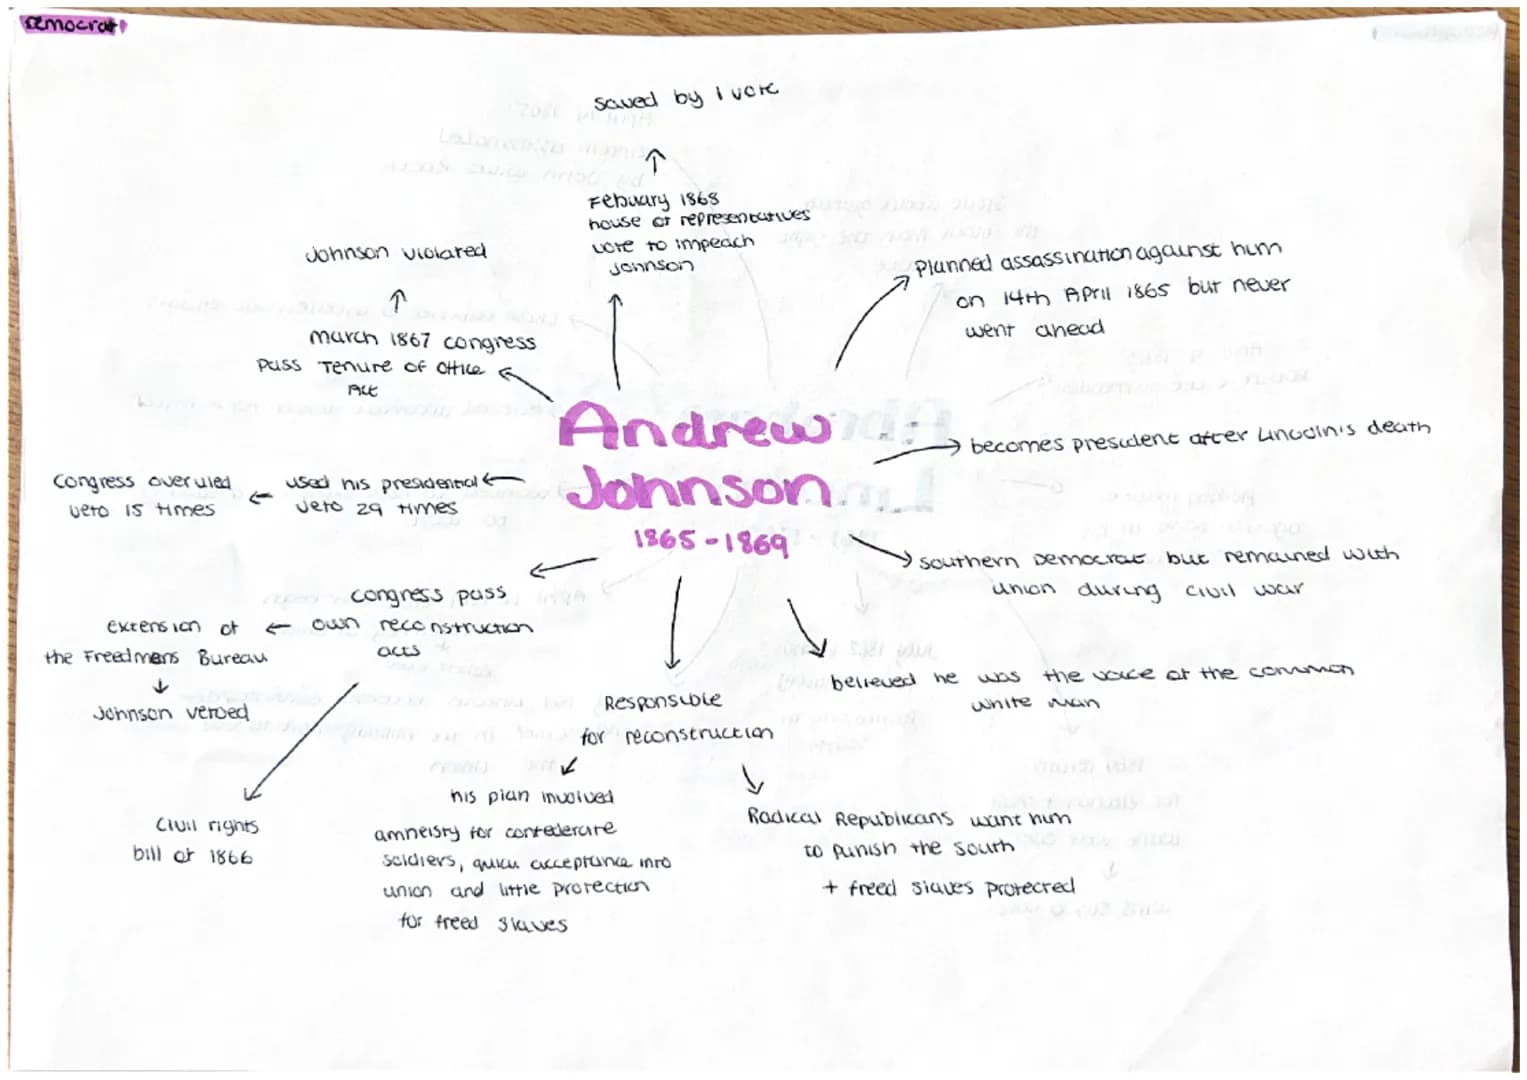 Democrat
saved by 1 vote
Febuary 1868
house of representatives
vote to impeach
Johnson
Johnson violated
March 1867 congress
pass Tenure of Office
Act
Planned assassination against him
on 14th April 1865 but never
went ahead
Andrew
Johnson
1865-1869
becomes president after Lincoln's death
Congress overruled
veto 15 times
used his presidential
veto 29 times
southern Democrat but remained with
union during civil war
congress pass
own reconstruction
acts
extension of
the Freedmens Bureau
Johnson vetoed
believed he was the voice of the common
white man
Responsible
for reconstruction
his plan involved
amnesty for confederate
soldiers, quick acceptance into
union and little protection
for freed slaves
Radical Republicans want him
to punish the south
+ freed slaves protected
Civil rights
bill of 1866